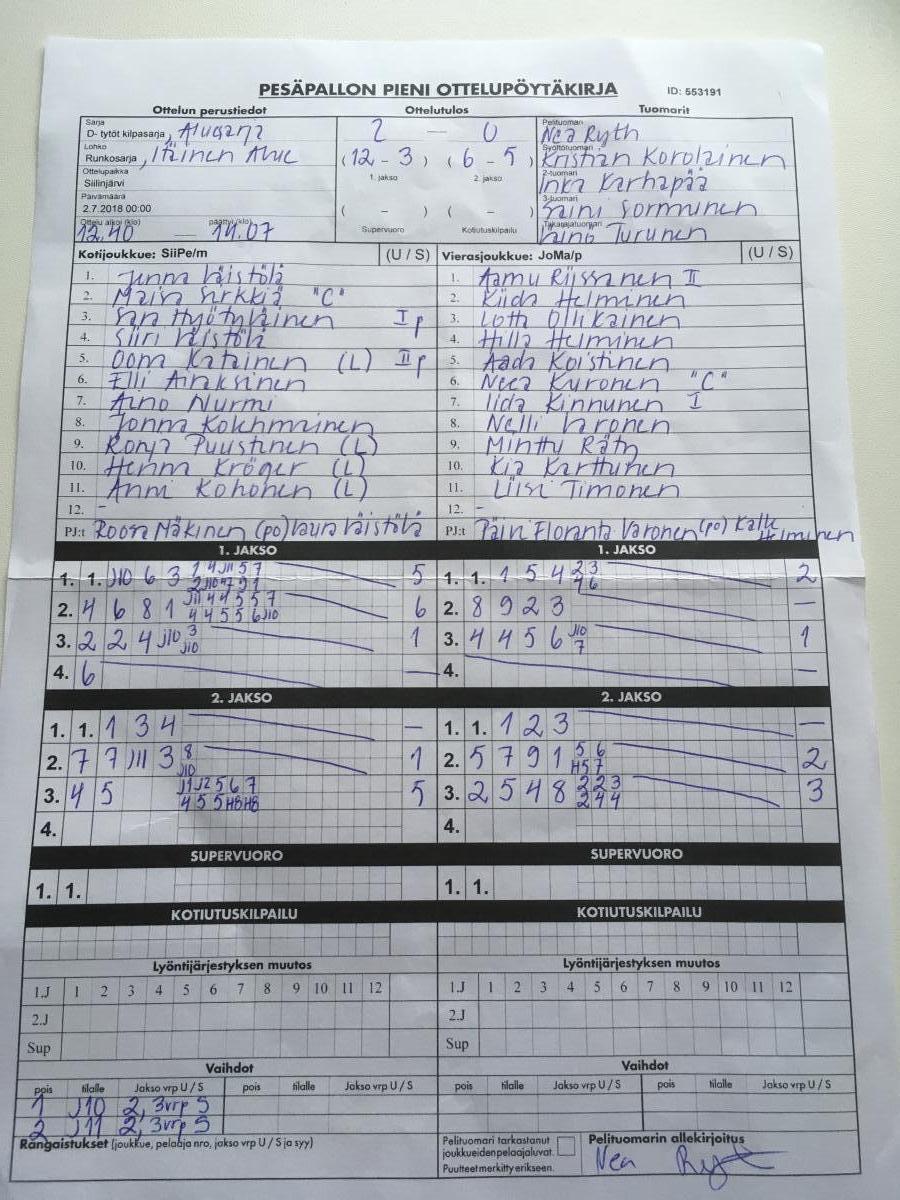 PESÄPALLON PIENI OTTELUPÖYTÄKIRJA ID: 553191
Ottelun perustiedot Ottelutulos Tuomarit
Sarja
D- tytöt kilpasarja, Alusarja
Lohko
Runkosarja, Itäinen Alue
Ottelupaikka
Siilinjärvi
Päivämäärä
2.7.2018 00:00
Ottelu alkoi (klo) päättyi (klo)
12.40 — 14.07
2 — 0
(12 - 3) (6 - 5)
1. jakso 2. jakso
( - ) ( - )
Supervuoro Kotiutuskilpailu
Pelituomari
Nea Ryth
Syöttötuomari
Kristian Korolainen
2-tuomari
Inka Karhapää
3-tuomari
Saini Sormunen
Takarajatuomari
Turunen
Kotijoukkue: SiiPe/m (U / S)
1. Jenna Väistölä
2. Maisa Sirkkiä "C"
3. Sara Hyötyläinen I p
4. Siiri Väistölä
5. Oona Katainen (L) II p
6. Elli Airaksinen
7. Aino Nurmi
8. Jonna Kolehmainen
9. Ronja Puustinen (L)
10. Henna Kröger (L)
11. Anni Kohonen (L)
12. -
PJ:t Roosa Mäkinen (po) Laura Väistölä
Vierasjoukkue: JoMa/p (U / S)
1. Aamu Riissanen II
2. Kiida Helminen
3. Lotta Ollikainen
4. Hilla Helminen
5. Aada Koistinen
6. Neea Kuronen "C"
7. Iida Kinnunen I
8. Nelli Varonen
9. Minttu Räty
10. Kia Karttunen
11. Liisi Timonen
12. -
PJ:t Päivi Floranta Varonen (po) Kalle Helminen
1. JAKSO
1. 1. J10 6 3 1 4 J11 5 7 5
2 J10 4 7 9 1
2. 4 6 8 1 J11 4 4 5 5 7 6
4 4 5 5 6 J10
3. 2 2 4 J10 3 1
J10
4. 6 —
1. JAKSO
1. 1. 1 5 4 2 3 2
4 6
2. 8 9 2 3 —
3. 4 4 5 6 J10 1
7
4. —
2. JAKSO
1. 1. 1 3 4 —
2. 7 7 J11 3 8 1
J10
3. 4 5 J1 J2 5 6 7 5
4 5 5 H8 H8
4.
2. JAKSO
1. 1. 1 2 3 —
2. 5 7 9 1 5 6 2
H5 7
3. 2 5 4 8 2 2 3 3
2 4 4
4.
SUPERVUORO
1. 1.
SUPERVUORO
1. 1.
KOTIUTUSKILPAILU
KOTIUTUSKILPAILU
Lyöntijärjestyksen muutos
1.J 1 2 3 4 5 6 7 8 9 10 11 12
2.J
Sup
Lyöntijärjestyksen muutos
1.J 1 2 3 4 5 6 7 8 9 10 11 12
2.J
Sup
Vaihdot
pois tilalle Jakso vrp U / S pois tilalle Jakso vrp U / S
1 J10 2, 3vrp S
2 J11 2, 3vrp S
Vaihdot
pois tilalle Jakso vrp U / S pois tilalle Jakso vrp U / S
Rangaistukset (joukkue, pelaaja nro, jakso vrp U / S ja syy)
Pelituomari tarkastanut
joukkueiden pelaajaluvat.
Puutteet merkitty erikseen.
Pelituomarin allekirjoitus
Nea Ryt